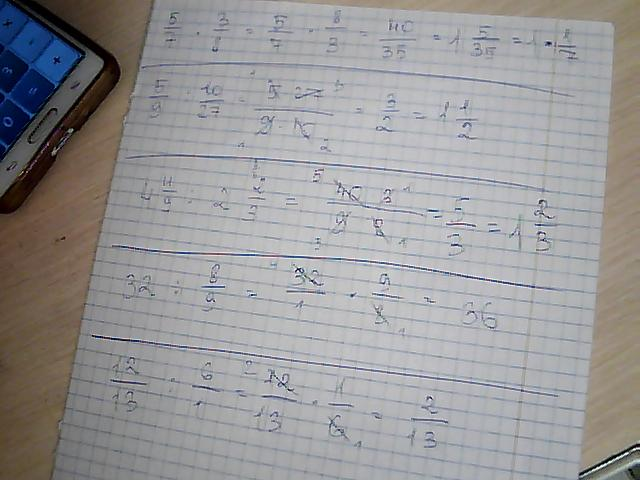 5/7 : 3/ = 5/7 · 8/3 = 40/35 = 1 5/35 = 1 1/7
5/9 : 10/27 = 5 27/9 · = 3/2 = 1 1/2
4 4/9 : 2 2/3 = 40 3/9 8 = 5/3 = 1 2/3
32 : 8/9 = 32/1 · 9/8 = 36
12/13 : 6/1 = 12/13 · 1/6 = 2/13